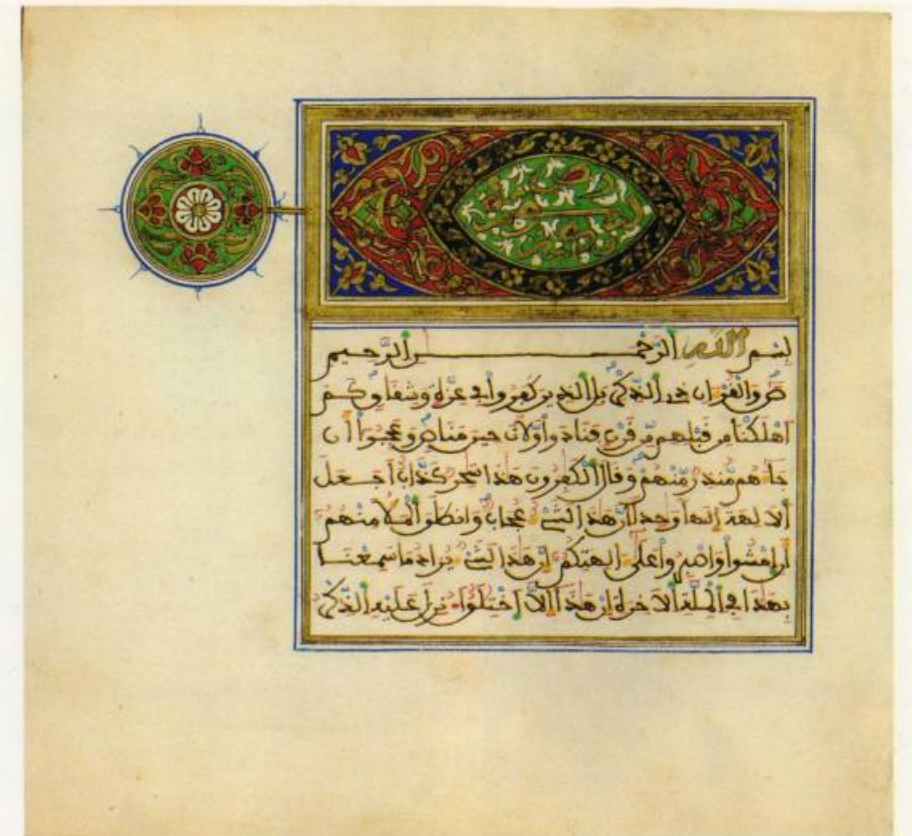 بسم الله الرحمن الرحيم
ص والقرءان ذى الذكر بل الذين كفروا فى عزة وشقاق كم
أهلكنا من قبلهم من قرن فنادوا ولات حين مناص وعجبوا أن
جاءهم منذر منهم وقال الكفرون هذا سحر كذاب أجعل
الالهة إلها وحدا إن هذا لشىء عجاب وانطلق الملأ منهم
أن امشوا واصبروا على ءالهتكم إن هذا لشىء يراد ما سمعنا
بهذا فى الملة الاخرة إن هذا إلا اختلق أءنزل عليه الذكر